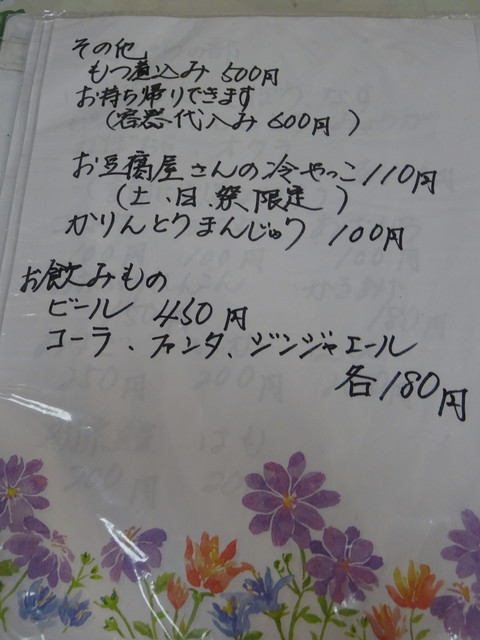 その他
もつ煮込み 500円
お持ち帰りできます
(容器代込み 600円)
お豆腐屋さんの冷やっこ 110円
(土、日、祭限定)
かりんとうまんじゅう 100円
お飲みもの
ビール 450円
コーラ、ファンタ、ジンジャエール
各180円